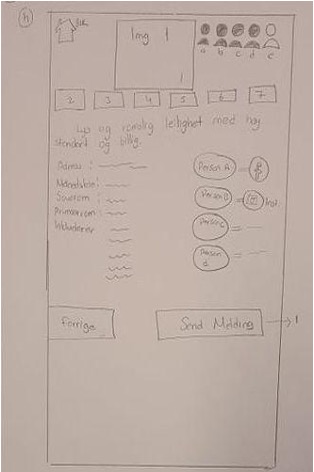 h
Img 1
1
a b c d e
2 3 4 5 6 7
Lys og romslig leilighet med høy
standart og billig.
Adresse :
Månedsleie :
Soverom :
Primærrom :
Inkluderer
Person A =
Person B =
Person C =
Person
d =
Forrige
Send Melding
1